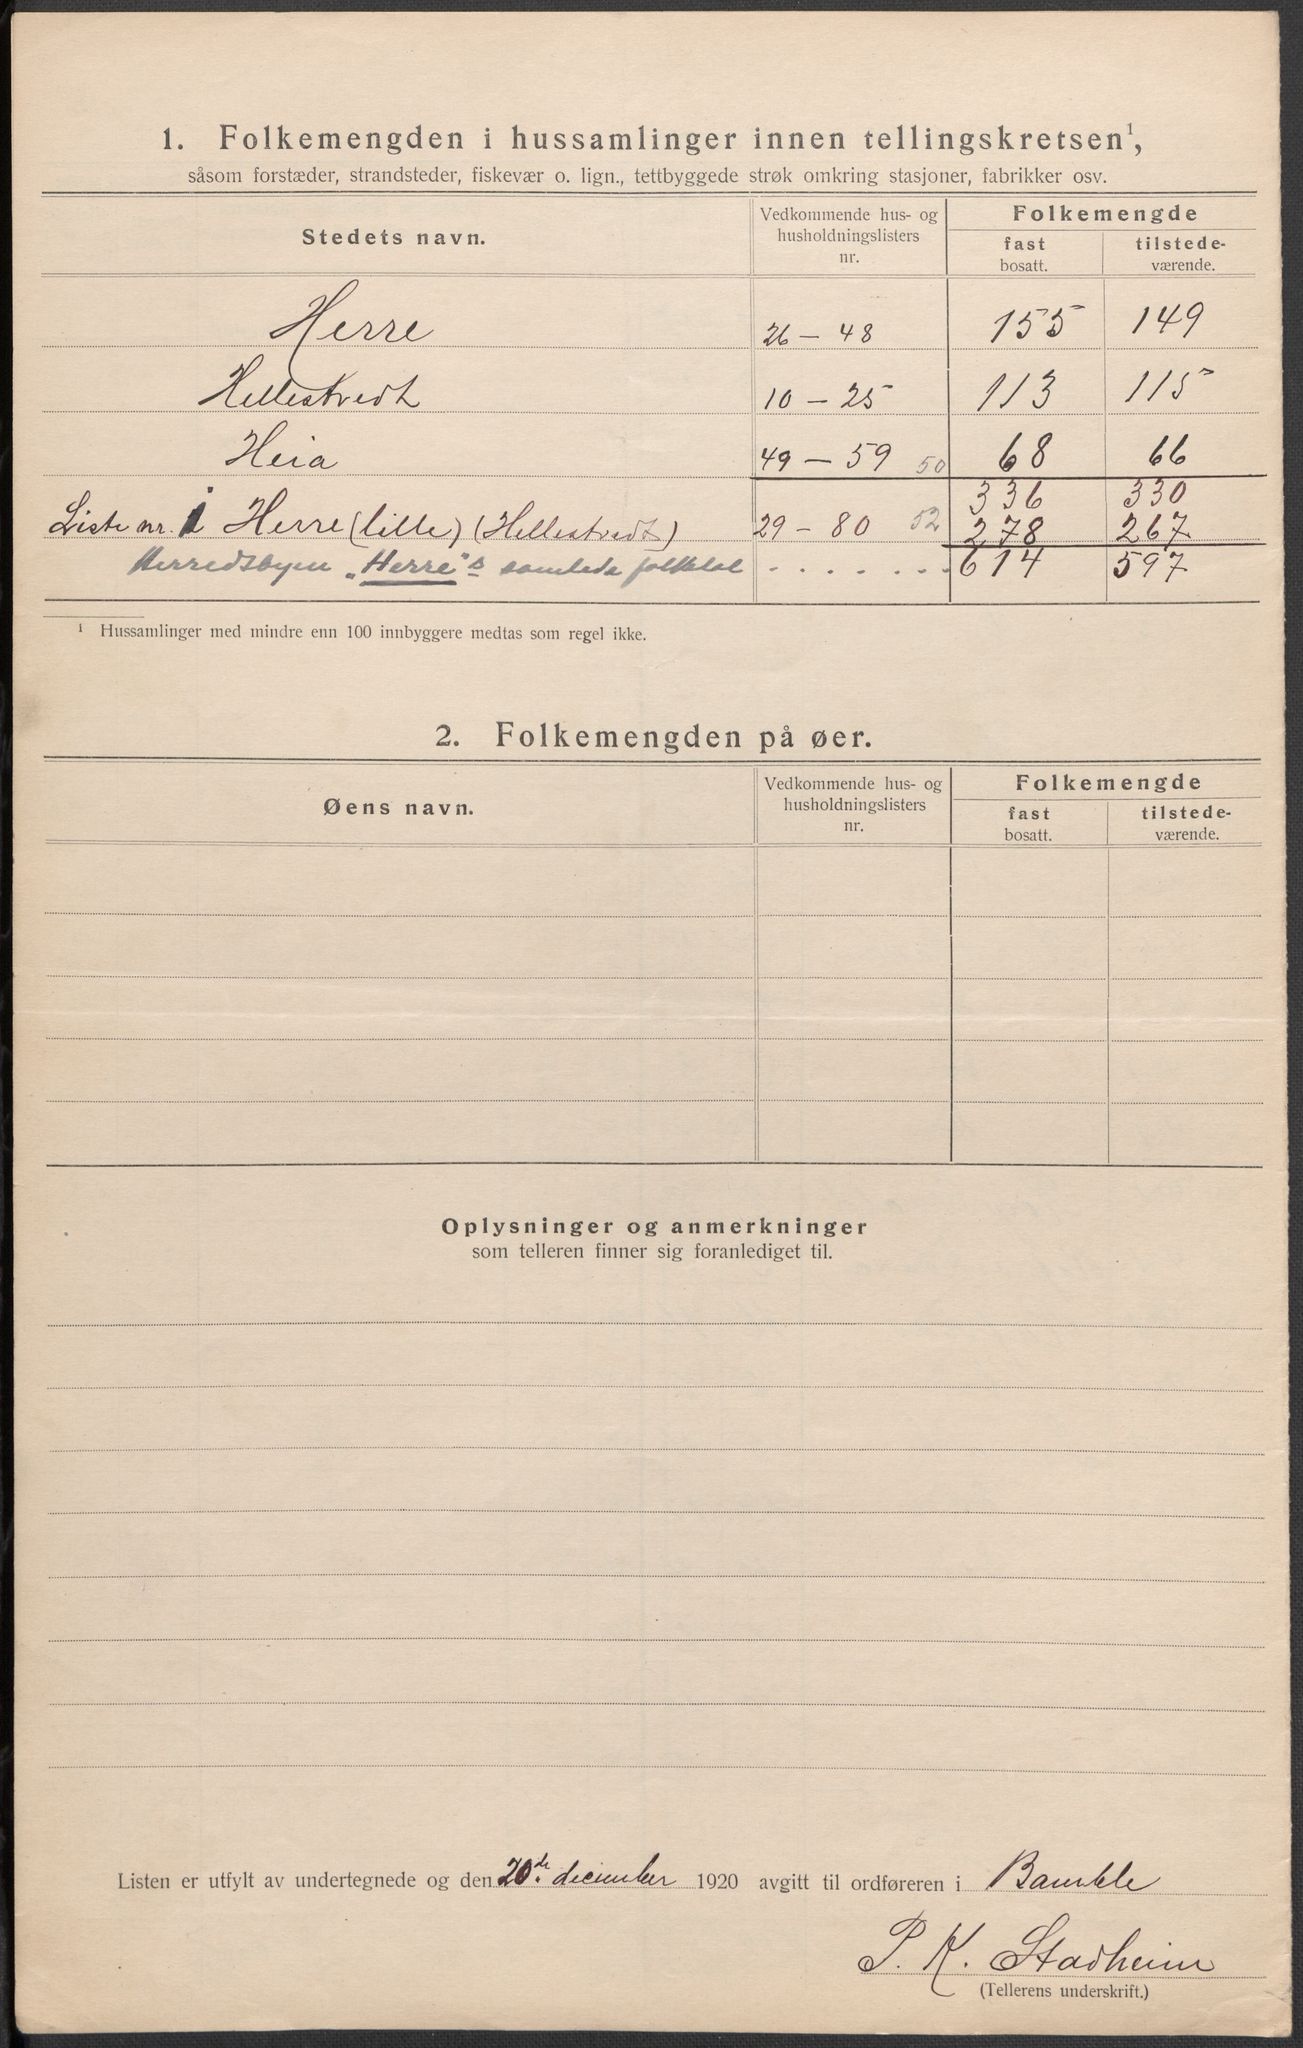 1. Folkemengden i hussamlinger innen tellingskretsen¹,
såsom forstæder, strandsteder, fiskevær o. lign., tettbyggede strøk omkring stasjoner, fabrikker osv.
Stedets navn. Vedkommende hus- og husholdningslisters nr. Folkemengde
fast bosatt. tilstede-værende.
Herre 26 — 48 155 149
Hellestvedt 10 — 25 113 115
Heia 49 — 59 50 68 66
336 330
Liste nr. 1 Herre (lille) (Hellestvedt) 29 — 80 52 278 267
Herredsbyen „Herre"s samlede folketal . . . . . . . 614 597
¹ Hussamlinger med mindre enn 100 innbyggere medtas som regel ikke.
2. Folkemengden på øer.
Øens navn. Vedkommende hus- og husholdningslisters nr. Folkemengde
fast bosatt. tilstede-værende.
Oplysninger og anmerkninger
som telleren finner sig foranlediget til.
Listen er utfylt av undertegnede og den 20de december 1920 avgitt til ordføreren i Bamble
P. K. Stadheim
(Tellerens underskrift.)